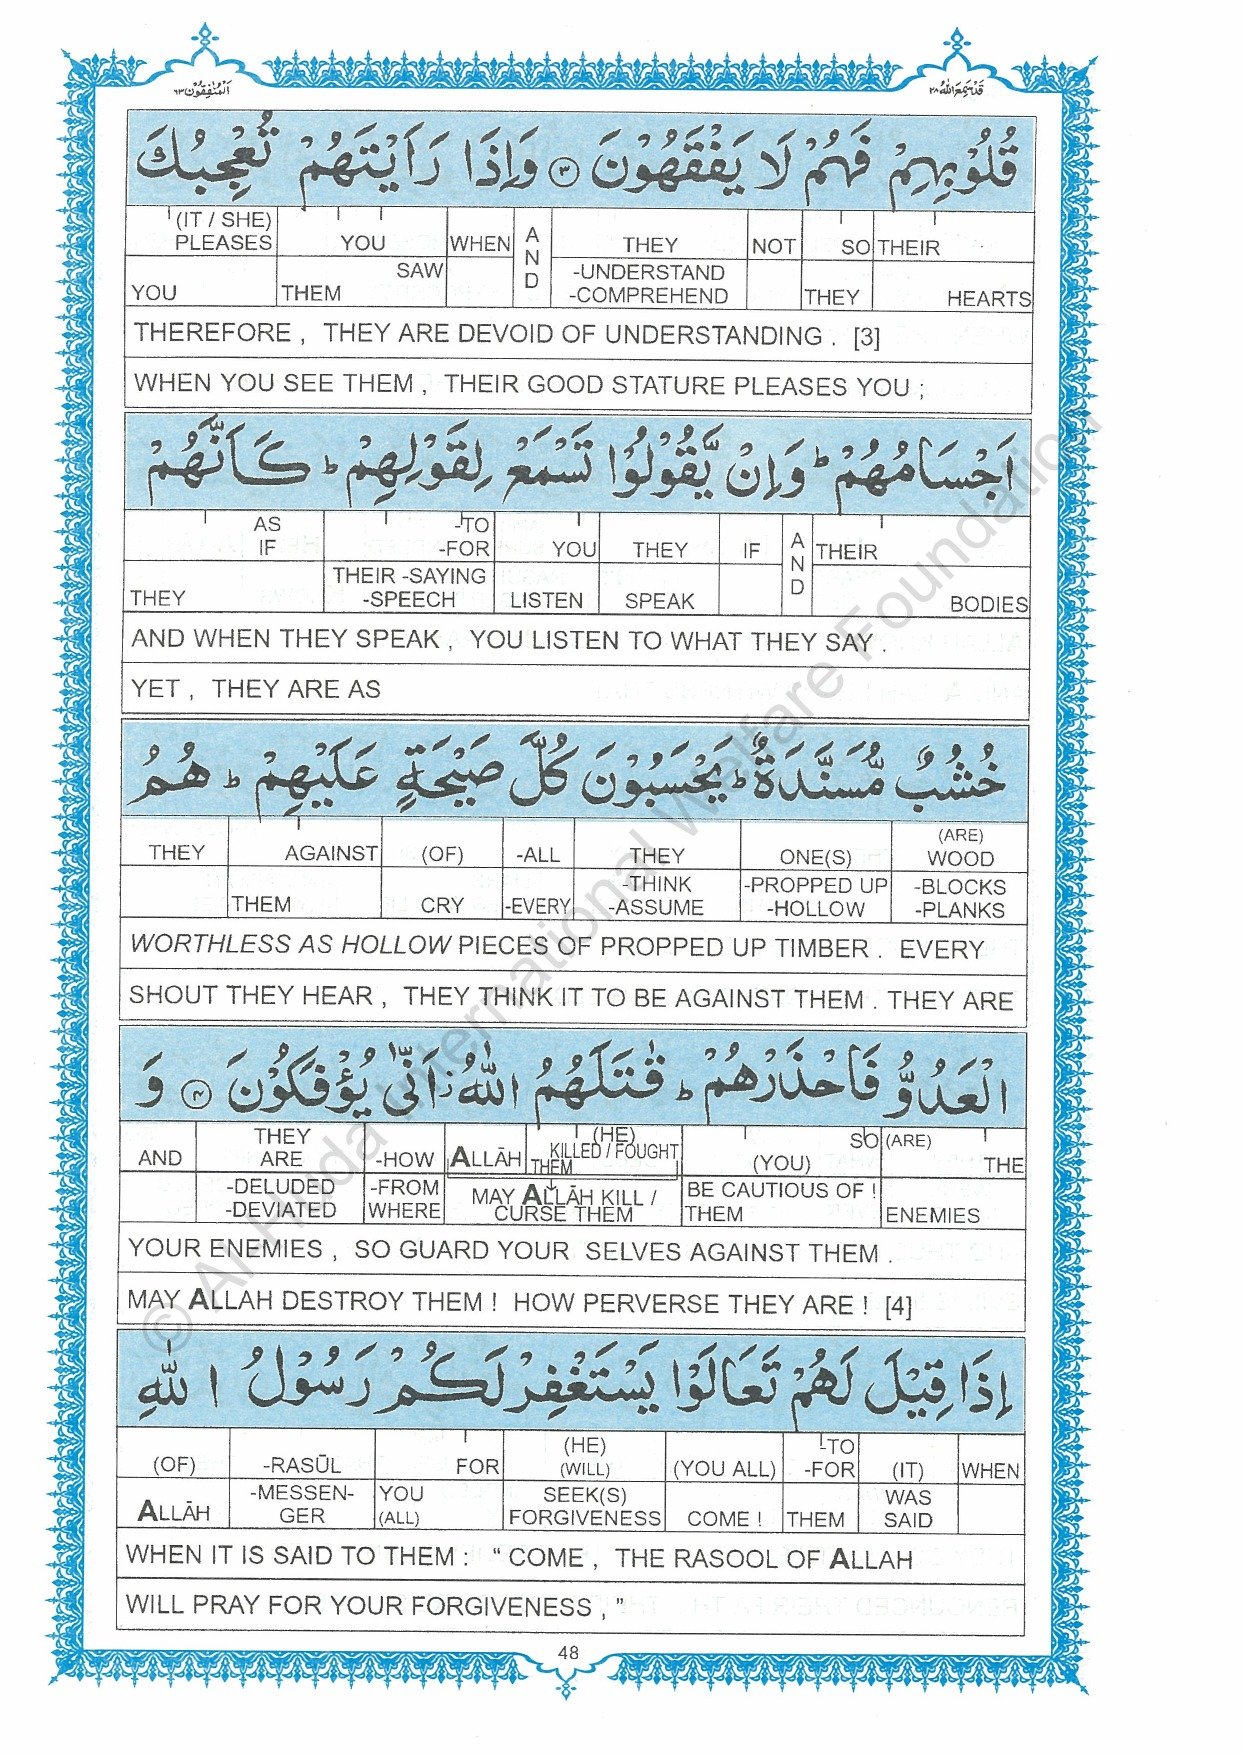 المنٰفقون ٦٣
قد سمع الله ٢٨
قُلُوْبِهِمْ فَهُمْ لَا يَفْقَهُوْنَ ٣ وَاِذَا رَاَيْتَهُمْ تُعْجِبُكَ
(IT / SHE) PLEASES YOU WHEN AND THEY NOT SO THEIR
YOU THEM SAW -UNDERSTAND -COMPREHEND THEY HEARTS
THEREFORE , THEY ARE DEVOID OF UNDERSTANDING . [3]
WHEN YOU SEE THEM , THEIR GOOD STATURE PLEASES YOU ;
اَجْسَامُهُمْ ؕ وَاِنْ يَّقُوْلُوْا تَسْمَعْ لِقَوْلِهِمْ ؕ كَاَنَّهُمْ
AS IF -TO -FOR YOU THEY IF AND THEIR
THEY THEIR -SAYING -SPEECH LISTEN SPEAK BODIES
AND WHEN THEY SPEAK , YOU LISTEN TO WHAT THEY SAY .
YET , THEY ARE AS
خُشُبٌ مُّسَنَّدَةٌ ؕ يَحْسَبُوْنَ كُلَّ صَيْحَةٍ عَلَيْهِمْ ؕ هُمُ
THEY AGAINST (OF) -ALL THEY ONE(S) (ARE) WOOD
THEM CRY -EVERY -THINK -ASSUME -PROPPED UP -HOLLOW -BLOCKS -PLANKS
WORTHLESS AS HOLLOW PIECES OF PROPPED UP TIMBER . EVERY
SHOUT THEY HEAR , THEY THINK IT TO BE AGAINST THEM . THEY ARE
الْعَدُوُّ فَاحْذَرْهُمْ ؕ قٰتَلَهُمُ اللّٰهُ ؗ اَنّٰى يُؤْفَكُوْنَ ٤ وَ
AND THEY ARE -HOW ALLĀH (HE) KILLED / FOUGHT THEM SO (YOU) (ARE) THE
-DELUDED -DEVIATED -FROM WHERE MAY ALLĀH KILL / CURSE THEM BE CAUTIOUS OF ! THEM ENEMIES
YOUR ENEMIES , SO GUARD YOUR SELVES AGAINST THEM .
MAY ALLAH DESTROY THEM ! HOW PERVERSE THEY ARE ! [4]
اِذَا قِيْلَ لَهُمْ تَعَالَوْا يَسْتَغْفِرْ لَكُمْ رَسُوْلُ اللّٰهِ
(OF) -RASŪL FOR (HE) (WILL) (YOU ALL) -TO -FOR (IT) WHEN
ALLĀH -MESSEN- GER YOU (ALL) SEEK(S) FORGIVENESS COME ! THEM WAS SAID
WHEN IT IS SAID TO THEM : “ COME , THE RASOOL OF ALLAH
WILL PRAY FOR YOUR FORGIVENESS , ”
48
© Al-Huda International Welfare Foundation